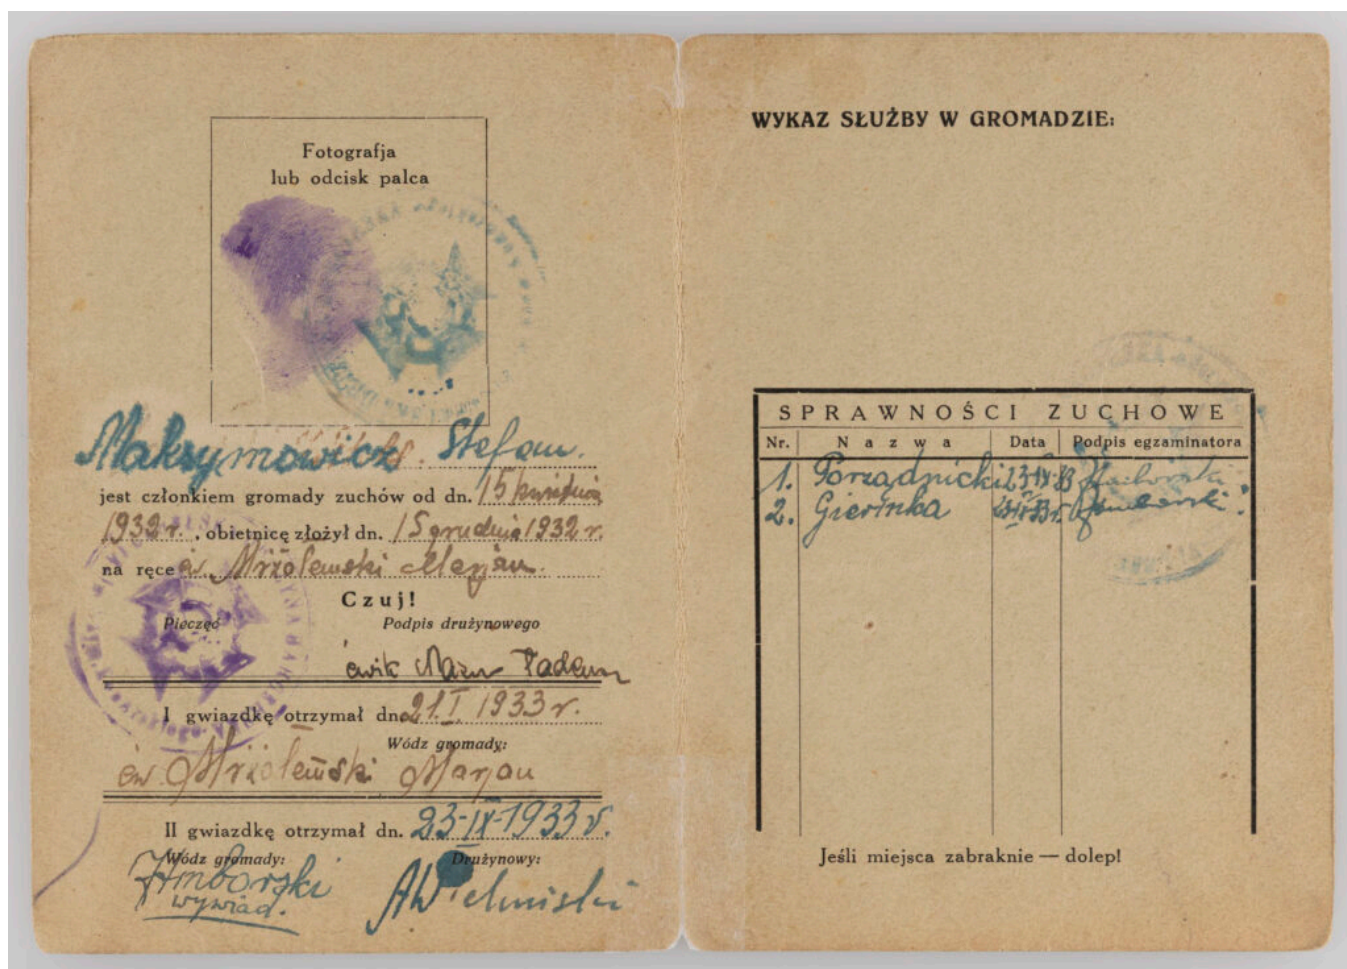 Fotografja
lub odcisk palca
Maksymowicz Stefan.
jest członkiem gromady zuchów od dn. 15 kwietnia
1932 r., obietnicę złożył dn. 15 grudnia 1932 r.
na ręce ćw. Marjan.
Czuj!
Pieczęć Podpis drużynowego
ćwik Mazur Tadeusz
I gwiazdkę otrzymał dn. 21.I.1933 r.
Wódz gromady:
ćw. Marjan
II gwiazdkę otrzymał dn. 23-IX-1933 r.
Wódz gromady: Drużynowy:
wywiad.
WYKAZ SŁUŻBY W GROMADZIE:
SPRAWNOŚCI ZUCHOWE
Nr. Nazwa Data Podpis egzaminatora
1. Porządnicki 23-IX-33
2. Gierinka 23-IX-33 r.
Jeśli miejsca zabraknie — dolep!